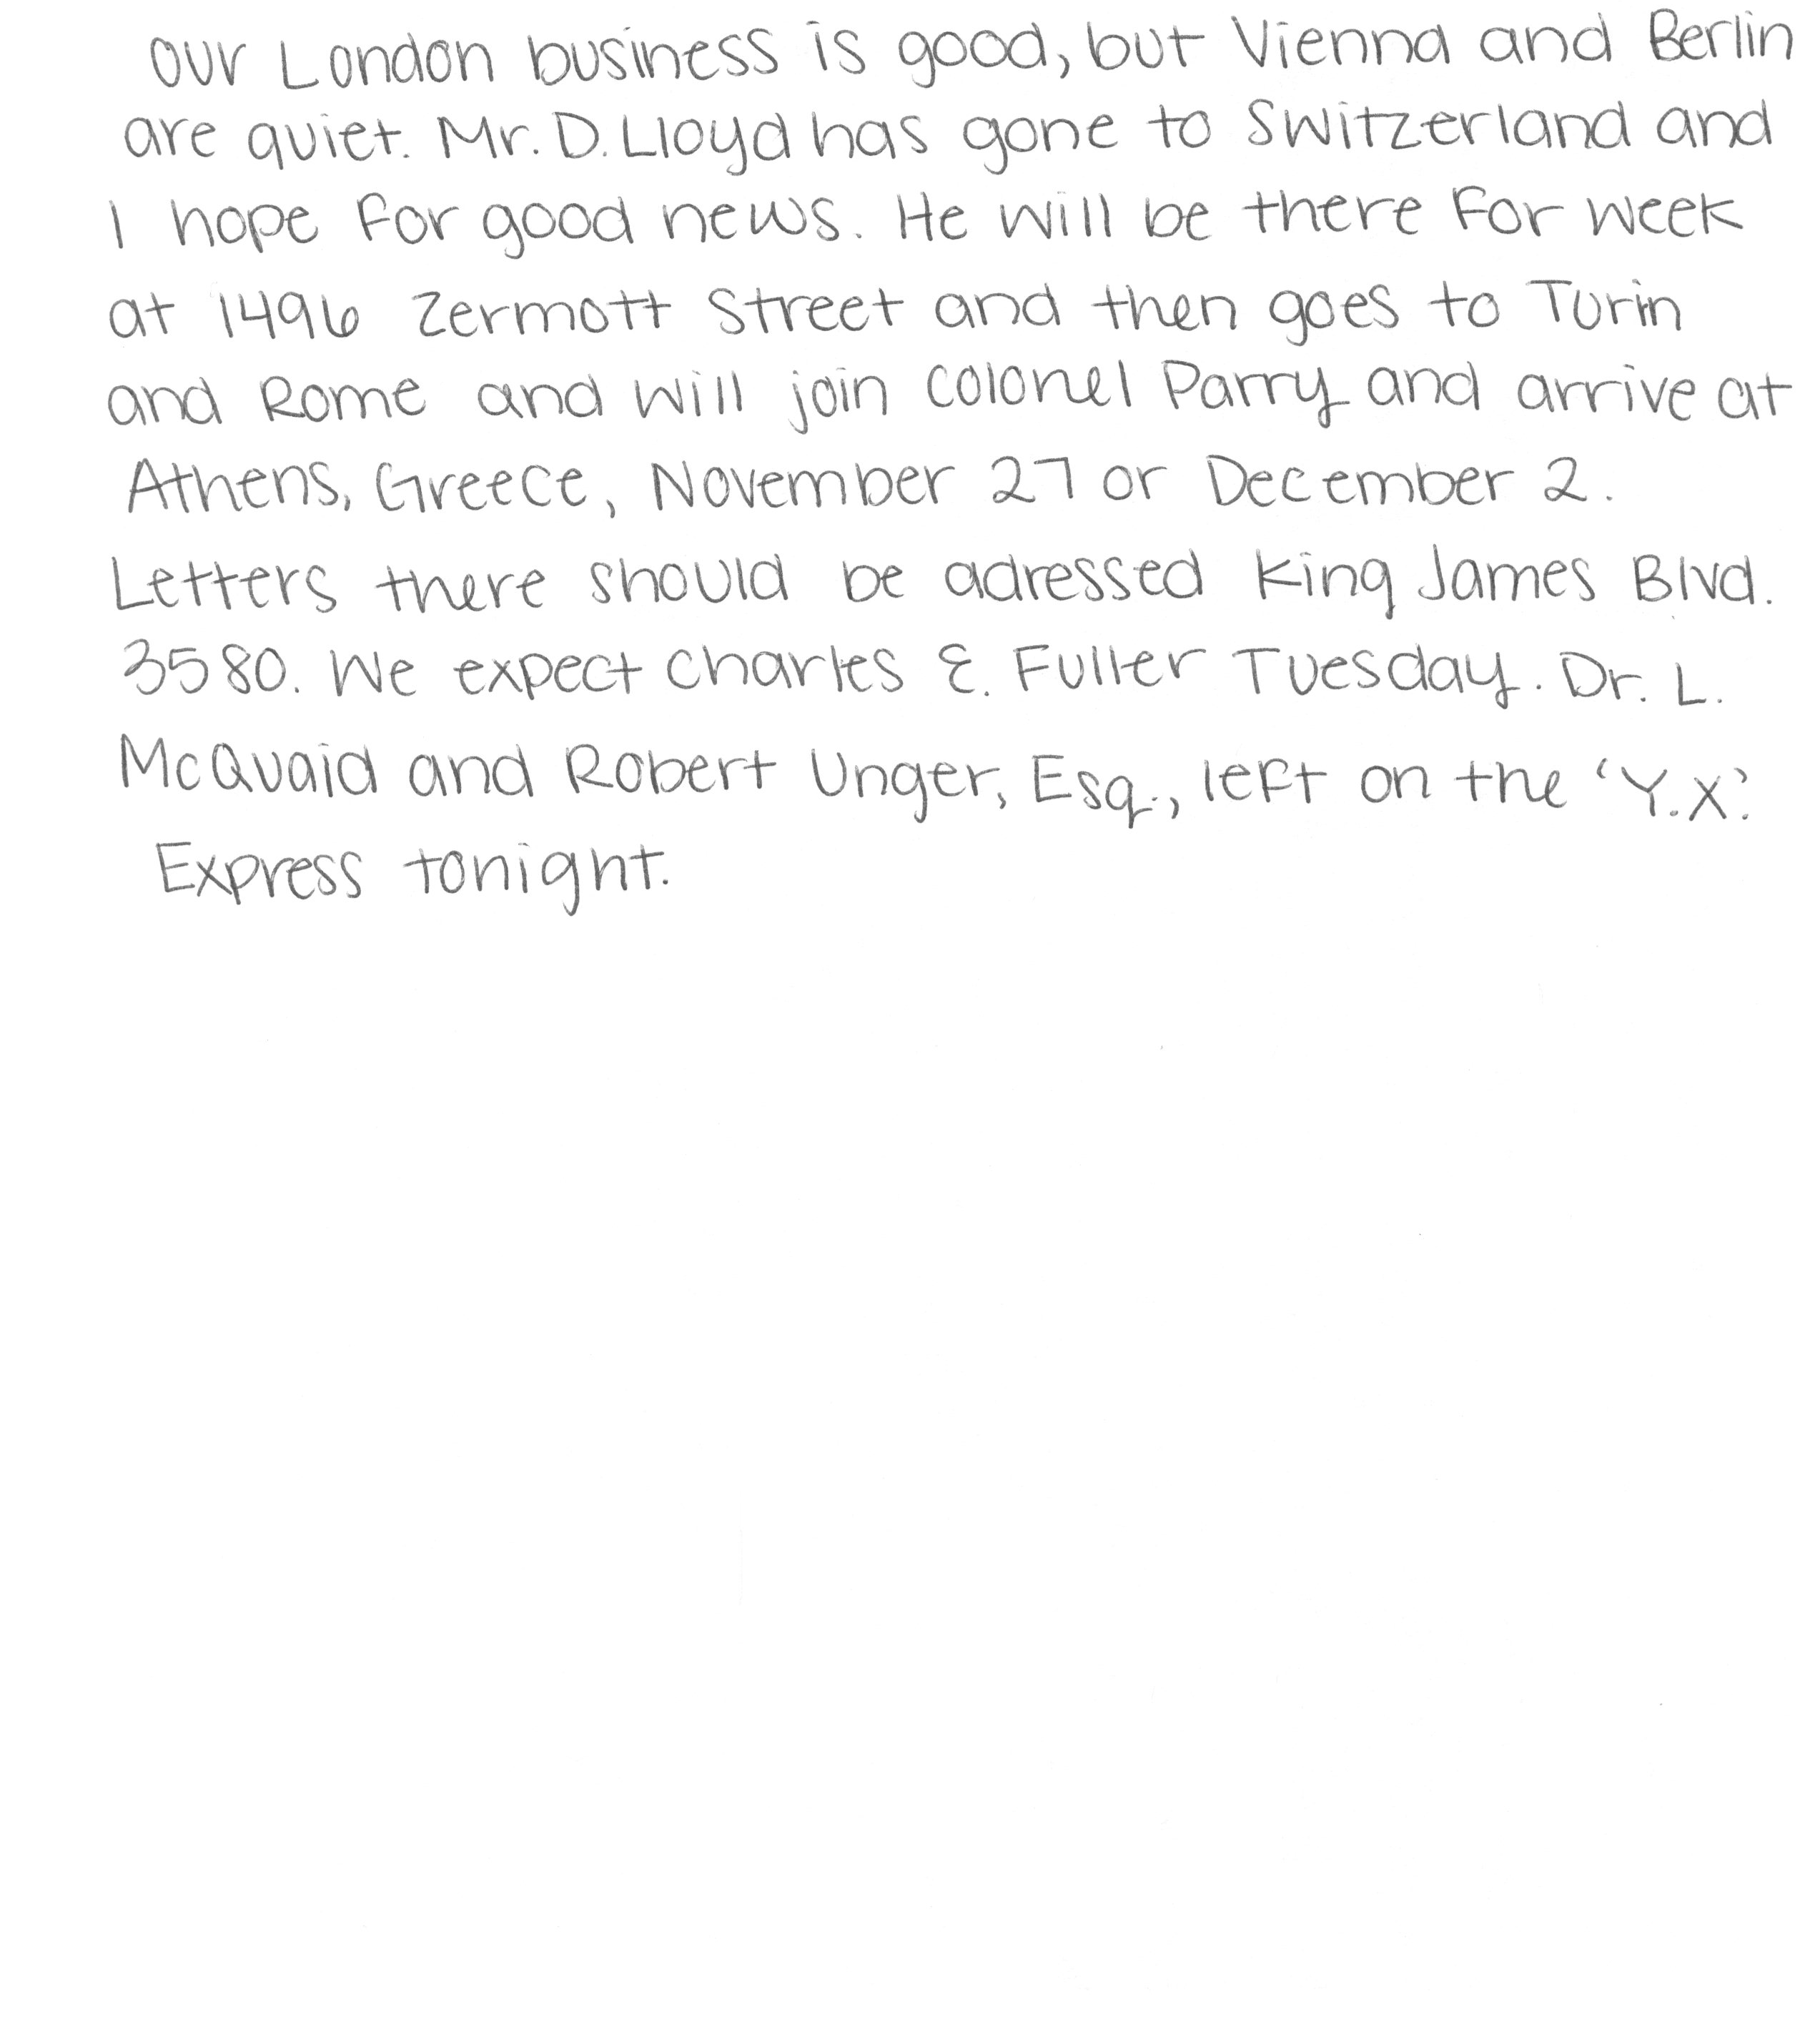 Our London business is good, but Vienna and Berlin
are quiet. Mr. D. Lloyd has gone to Switzerland and
I hope for good news. He will be there for week
at 1496 Zermott Street and then goes to Turin
and Rome and will join Colonel Parry and arrive at
Athens, Greece, November 27 or December 2.
Letters there should be adressed King James Blvd.
3580. We expect Charles E. Fuller Tuesday. Dr. L.
McQuaid and Robert Unger, Esq., left on the 'Y.X.'
Express tonight.